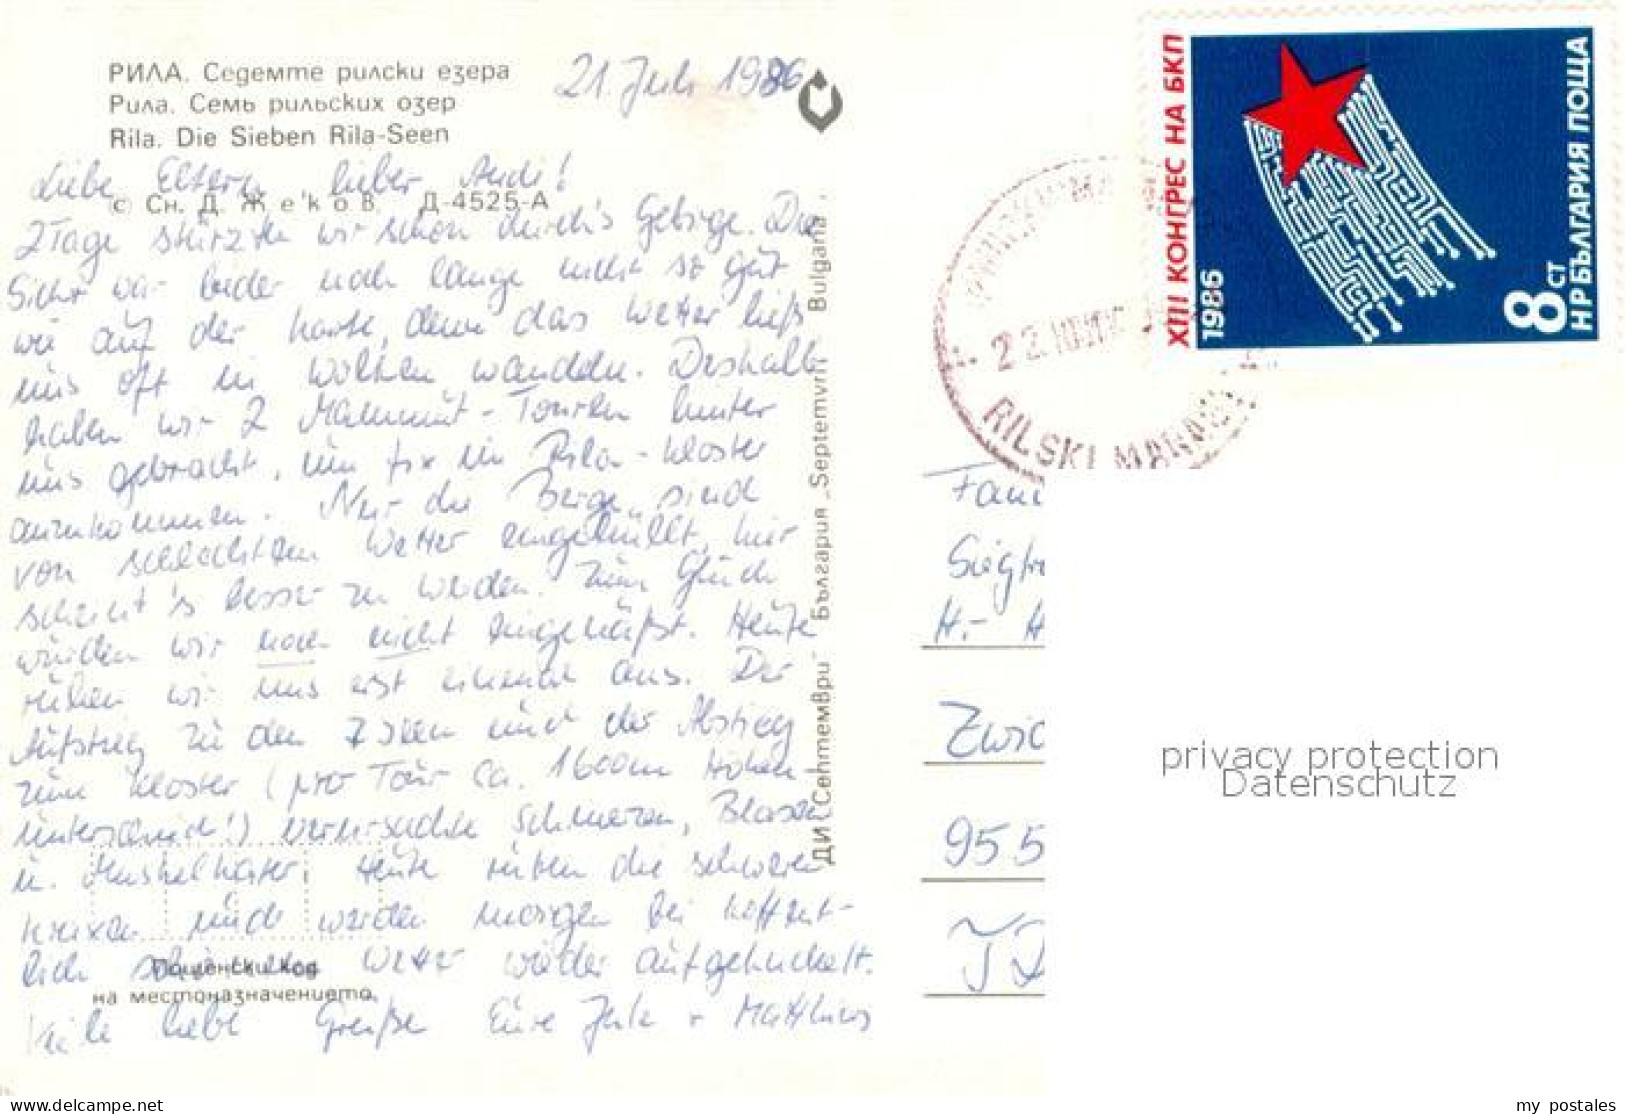 РИЛА. Седемте рилски езера
Рила. Семь рильских озер
Rila. Die Sieben Rila-Seen
© Сн. Д. Жеков Д-4525-А
21. Juli 1986
Liebe Eltern, lieber Andi!
2 Tage stürzten wir schon durch's Gebirge. Die
Sicht war leider noch lange nicht so gut
wie auf der Karte, denn das Wetter ließ
uns oft in Wolken wandeln. Deshalb
haben wir 2 Mammut-Touren hinter
uns gebracht, um fix im Rila-Kloster
anzukommen. Nur die Berge sind
von schlechtem Wetter eingehüllt, hier
scheint's besser zu werden. Zum Glück
wurden wir noch nicht eingenäßt. Heute
ruhen wir uns erst einmal aus. Der
Aufstieg zu den 7 Seen und der Abstieg
zum Kloster (pro Tour ca. 1600m Höhen-
unterschied!) verursachte Schmerzen, Blasen
u. Muskelkater. Heute ruhen die schweren
Kraxen und werden morgen bei hoffent-
lich schönem Wetter wieder aufgebuckelt.
Viele liebe Grüße Eure Jule + Matthias
Пощенски код
на местоназначението
ДИ „Септември" България „Septemvri" Bulgaria
XIII КОНГРЕС НА БКП
1986
8 СТ
НР БЪЛГАРИЯ ПОЩА
22
RILSKI MANA
Fami
Siegfr
H.- H
Zwic
955
privacy protection
Datenschutz
www.delcampe.net
my_postales